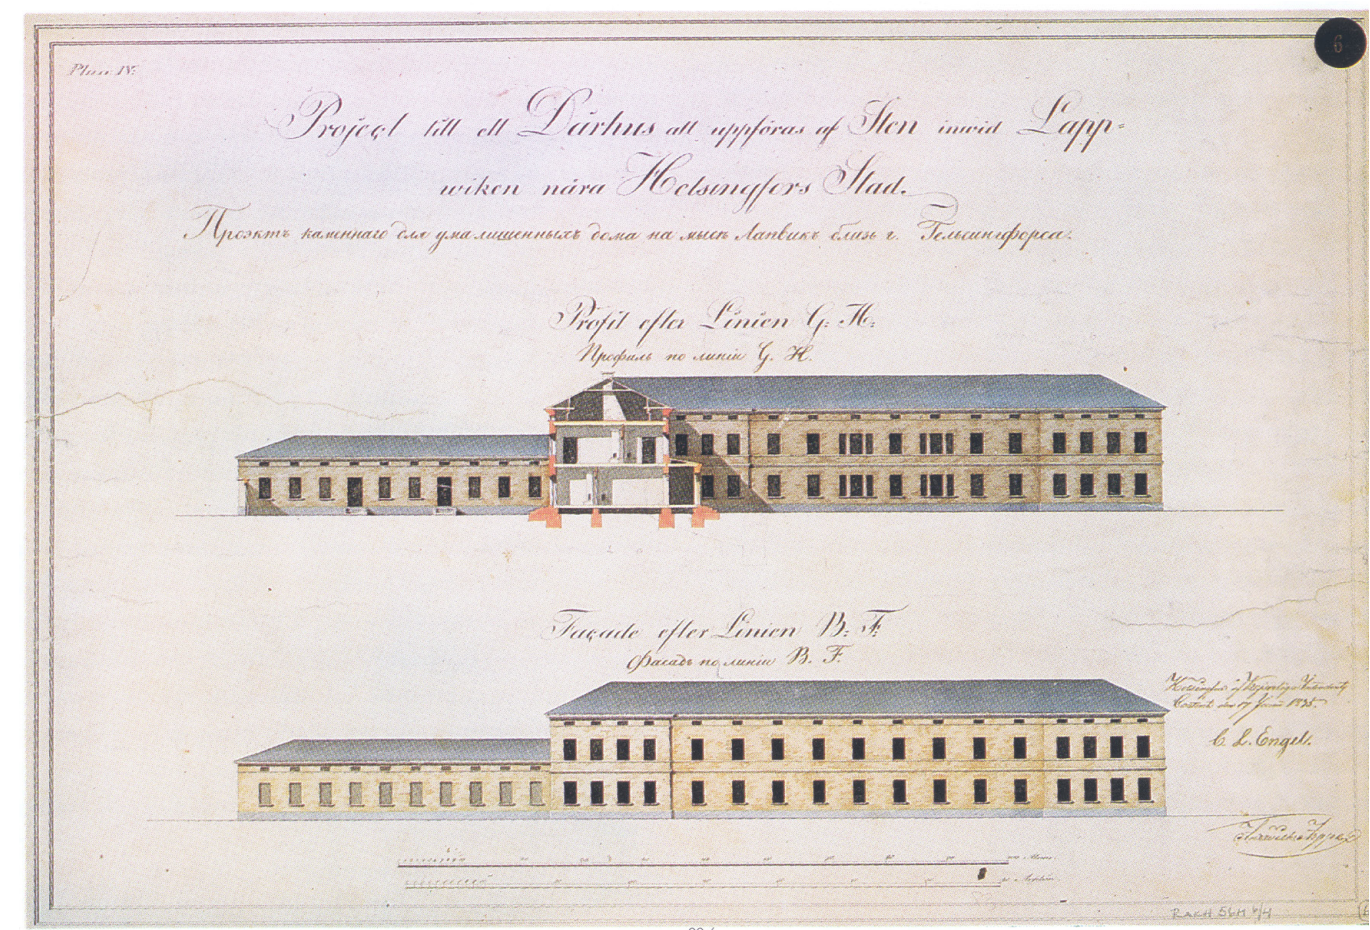 6
Plan IV.
Project till ett Dårhus att uppföras af Sten inwid Lapp=
wiken nära Helsingfors Stad.
Проэктъ каменнаго для умалишенныхъ дома на мысѣ Лапвикъ близь г. Гельсингфорса.
Profil efter Linien G: H:
Профиль по линіи G. H.
Façade efter Linien B: F:
Фасадъ по линіи B. F.
den 17 Junii 1835.
C. L. Engel.
RAKH 56H